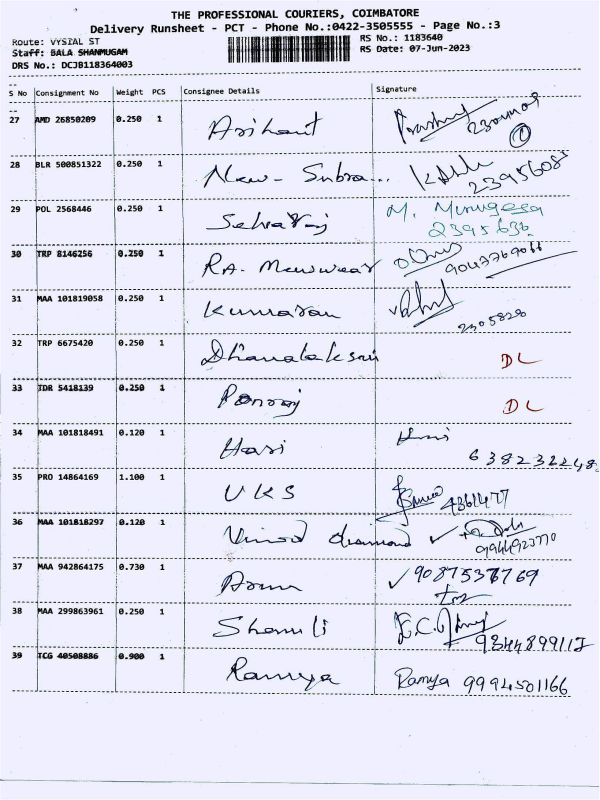 THE PROFESSIONAL COURIERS, COIMBATORE
Delivery Runsheet - PCT - Phone No.:0422-3505555 - Page No.:3
Route: VYSIAL ST RS No.: 1183640
Staff: BALA SHANMUGAM RS Date: 07-Jun-2023
DRS No.: DCJB118364003
S No Consignment No Weight PCS Consignee Details Signature
27 AMD 26850209 0.250 1 Arihant
28 BLR 500851322 0.250 1 New- Subra...
29 POL 2568446 0.250 1 Selvaraj M. Murugesa
30 TRP 8146256 0.250 1 RA-
31 MAA 101819058 0.250 1 Kumaran 2305828
32 TRP 6675420 0.250 1 Dhanalaksmi DL
33 TDR 5418139 0.250 1 Ponraj DL
34 MAA 101818491 0.120 1 Hari
35 PRO 14864169 1.100 1 UKS 4361477
36 MAA 101818297 0.120 1 Vinod diamond ✓
37 MAA 942864175 0.730 1 Arun ✓ 9087537769
38 MAA 299863961 0.250 1
39 TCG 40508886 0.900 1 Ramya Ramya 9994501166